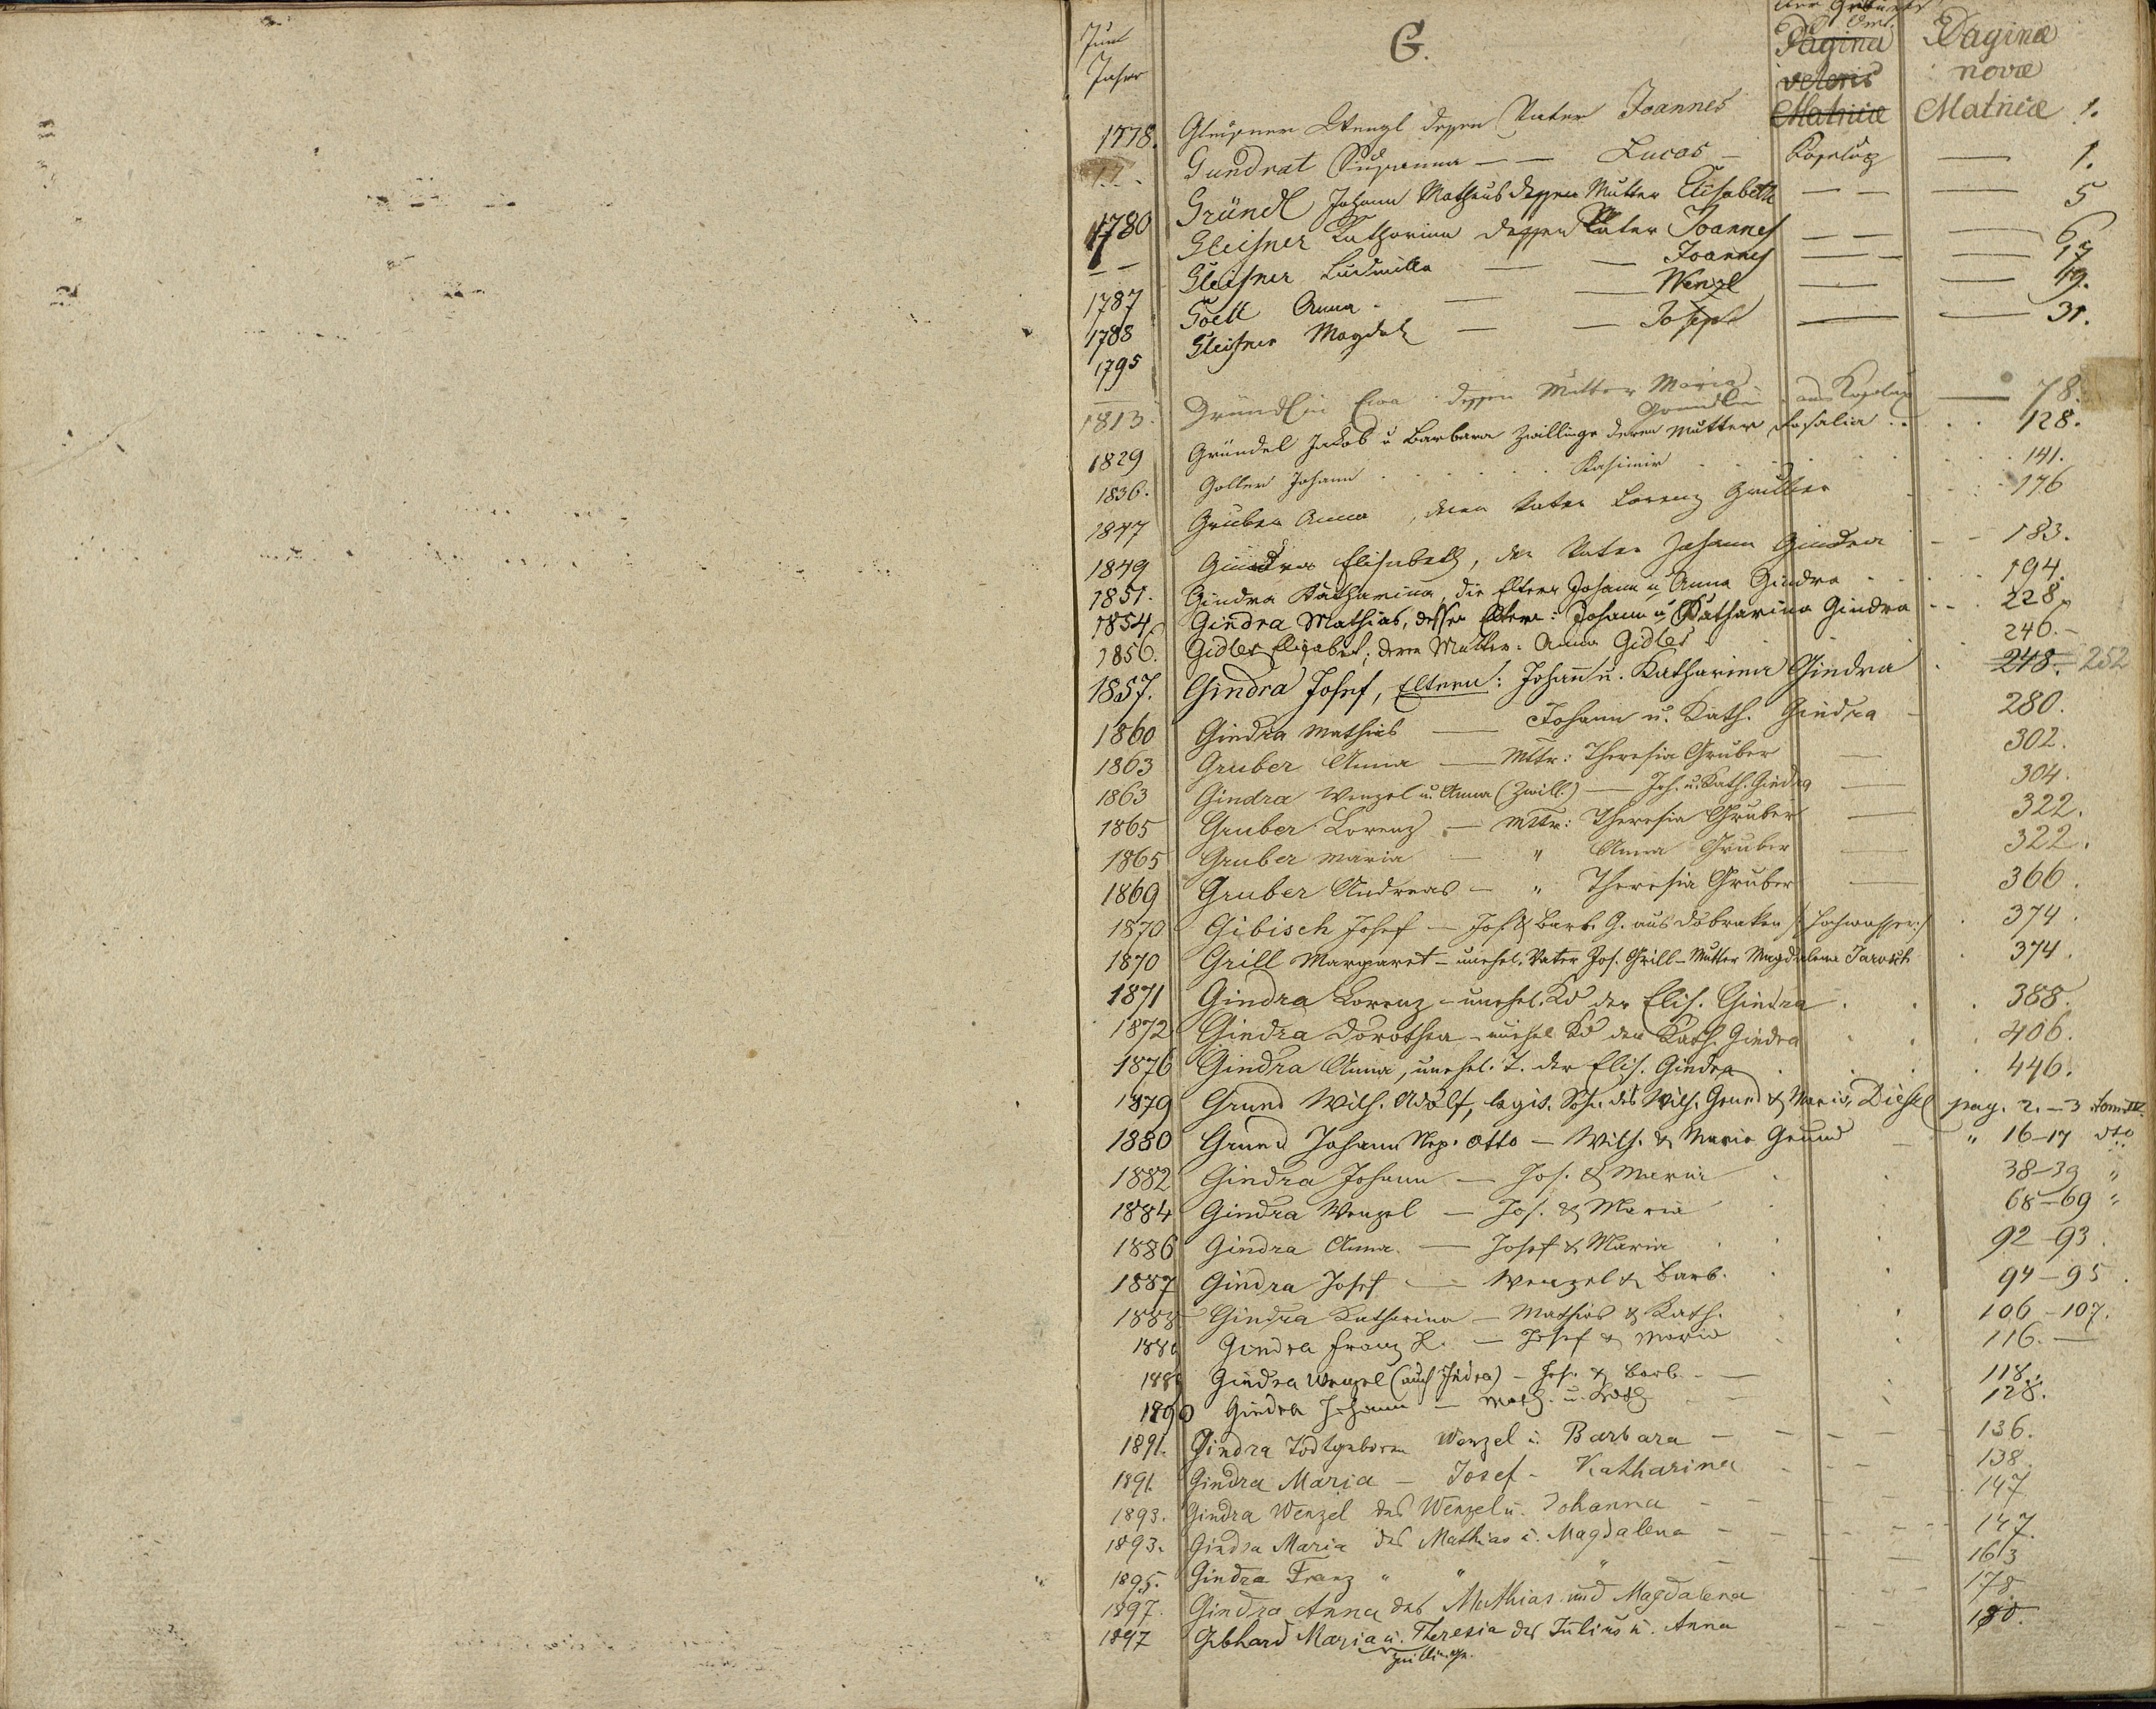 Zum Jahr
G.
der Geburts Ort.
Pagina veteris Matricæ
Paginæ novæ Matricæ
1778. Gleissner Wenzl dessen Vater Joannes 1.
Gundrat Susanna — — Lucas — 1.
1780 Gründl Johann Matheus dessen Mutter Elisabeth — — — 5
— — Gleisner Katharina dessen Vater Joannes — — — 6
1787 Gleisner Ludmilla — — Joannes — — — 17
1788 Goell Anna — — Wenzl — — 19.
1795 Gleisner Magdal — — Joseph — — 31.
1813. Gründlin Eva dessen Mutter Maria Gründlin — 78.
1829 Gründel Jakob u Barbara Zwillinge deren Mutter Rosalia . . . 128.
1836. Goller Johann . . . . Kasimir . . . 141.
1847 Gruber Anna, deren Vater Lorenz Gruber 176
1849 Gindra Elisabeth, der Vater Johann Gindra — — 183.
1851. Gindra Katharina, die Eltern Johann u Anna Gindra . . . 194.
1854. Gindra Mathias, dessen Eltern: Johann u Katharina Gindra . . . 228.
1856. Gidler Elisabet, deren Mutter: Anna Gidler . . . 246.
1857. Gindra Josef, Eltern: Johann u. Katharina Gindra . 248. 252
1860 Gindra Mathias — Johann u. Kath. Gindra — 280.
1863 Gruber Anna — Mttr: Theresia Gruber — 302.
1863 Gindra Wenzel u. Anna (Zwill.) — Joh. u. Kath. Gindra — 304.
1865 Gruber Lorenz — Mttr: Theresia Gruber — 322.
1865 Gruber Maria — " Anna Gruber — 322.
1869 Gruber Andreas — " Theresia Gruber — 366.
1870 Gibisch Josef — Jos. & Barb. G. aus Dobraken . 374.
1870 Grill Margaret — unehel. Vater Jos. Grill — Mutter Magdalena Jarosch . 374.
1871 Gindra Lorenz — unehel. Kd der Elis. Gindra . . . 388.
1872 Gindra Dorothea — unehel Kd der Kath. Gindra . . . 406.
1876 Gindra Anna, unehel. T. der Elis. Gindra . . . 446.
1879 Grund Wilh. Adolf, legit. Sohn des Wilh. Grund & Maria, Diehsl pag. 2.—3 tom. IV.
1880 Grund Johann Nep. Otto — Wilh. & Maria Grund — " 16—17 dto
1882 Gindra Johann — Jos. & Maria . . 38—39 "
1884 Gindra Wenzel — Jos. & Maria . . 68—69 "
1886 Gindra Anna — Josef & Maria . . 92—93.
1887 Gindra Josef — Wenzel & Barb. . . 94—95.
1888 Gindra Katharina — Mathias & Kath. . . 106—107.
1889 Gindra Franz X. — Josef & Maria . . 116.—
1889 Gindra Wenzel (auch Jndra) — Jos. & Barb. — 118.
1890 Gindra Johann — Math. u. Kath — 128.
1891. Gindra Todtgeboren Wenzel u. Barbara — — — — 136.
1891. Gindra Maria — Josef — Katharina — — — 138.
1893. Gindra Wenzel des Wenzel u. Johanna — — — 147
1893. Gindra Maria des Mathias u. Magdalena — — — 147.
1895. Gindra Franz " " " — — — 163
1897. Gindra Anna des Mathias und Magdalena — — 178
1897 Gebhard Maria u. Theresia des Julius u. Anna — — 180.
Zwillinge.